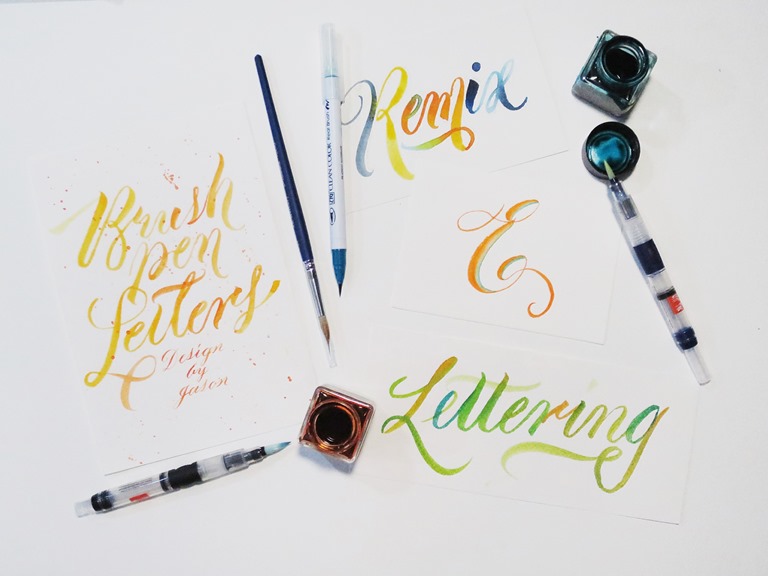 Brush
pen
Letters
Design
by
Jason
Remix
E
Lettering
CLEAN COLOR Real Brush